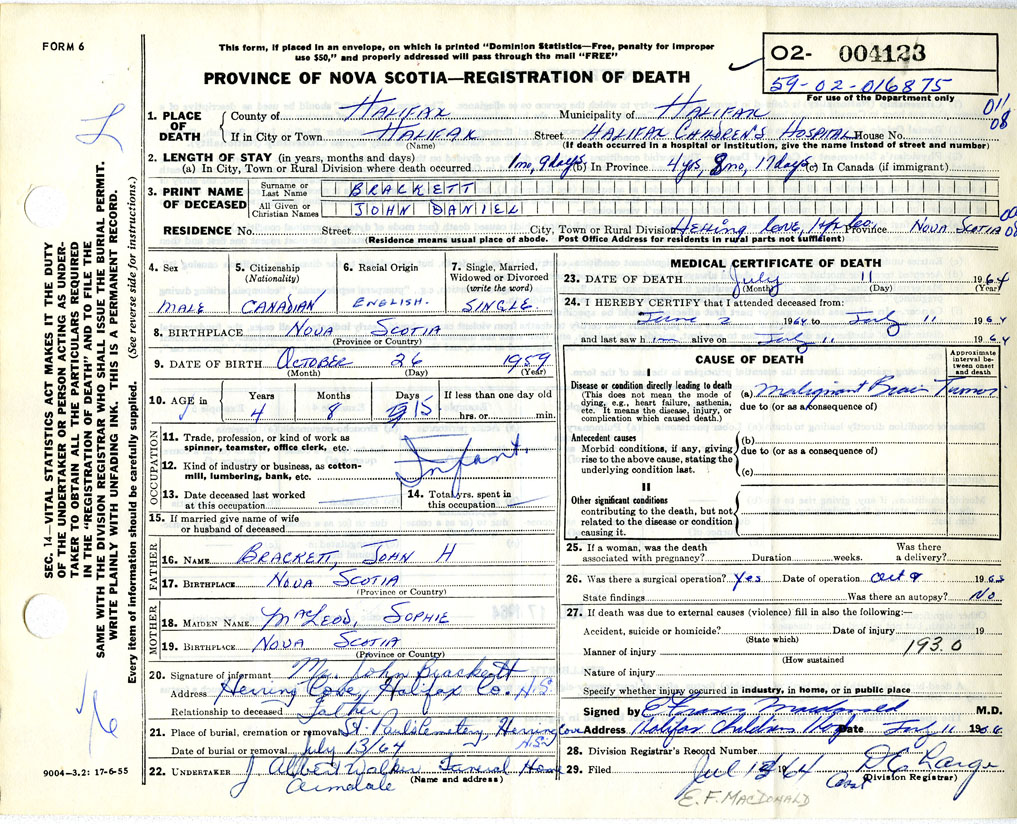 FORM 6
This form, if placed in an envelope, on which is printed "Dominion Statistics—Free, penalty for improper
use $50," and properly addressed will pass through the mail "FREE"
PROVINCE OF NOVA SCOTIA—REGISTRATION OF DEATH
02- 004123
59-02-016875
For use of the Department only
011
08
SEC. 14—VITAL STATISTICS ACT MAKES IT THE DUTY
OF THE UNDERTAKER OR PERSON ACTING AS UNDER-
TAKER TO OBTAIN ALL THE PARTICULARS REQUIRED
IN THE "REGISTRATION OF DEATH" AND TO FILE THE
SAME WITH THE DIVISION REGISTRAR WHO SHALL ISSUE THE BURIAL PERMIT.
WRITE PLAINLY WITH UNFADING INK. THIS IS A PERMANENT RECORD.
Every item of information should be carefully supplied. (See reverse side for instructions.)
1. PLACE OF DEATH
County of HALIFAX Municipality of HALIFAX
If in City or Town HALIFAX Street HALIFAX CHILDREN'S HOSPITAL House No.
(Name) (If death occurred in a hospital or institution, give the name instead of street and number)
2. LENGTH OF STAY (in years, months and days)
(a) In City, Town or Rural Division where death occurred 1 mo, 9 days (b) In Province 4 yrs, 8 mo, 17 days (c) In Canada (if immigrant)
3. PRINT NAME OF DECEASED
Surname or Last Name BRACKETT
All Given or Christian Names JOHN DANIEL
RESIDENCE No. Street City, Town or Rural Division Province NOVA SCOTIA
(Residence means usual place of abode. Post Office Address for residents in rural parts not sufficient)
4. Sex 5. Citizenship (Nationality) 6. Racial Origin 7. Single, Married, Widowed or Divorced (write the word)
MALE CANADIAN ENGLISH. SINGLE
8. BIRTHPLACE NOVA SCOTIA
(Province or Country)
9. DATE OF BIRTH OCTOBER 26 1959
(Month) (Day) (Year)
10. AGE in Years Months Days If less than one day old
4 8 15 hrs. or min.
OCCUPATION
11. Trade, profession, or kind of work as spinner, teamster, office clerk, etc.
Infant.
12. Kind of industry or business, as cotton-mill, lumbering, bank, etc.
13. Date deceased last worked at this occupation
14. Total yrs. spent in this occupation
15. If married give name of wife or husband of deceased
FATHER
16. NAME BRACKETT, JOHN H
17. BIRTHPLACE NOVA SCOTIA
(Province or Country)
MOTHER
18. MAIDEN NAME MacLEOD, SOPHIE
19. BIRTHPLACE NOVA SCOTIA
(Province or Country)
20. Signature of informant Mr John Brackett
Address Herring Cove, Halifax Co. N.S.
Relationship to deceased Father
21. Place of burial, cremation or removal St Pauls Cemetery, Herring Cove
N.S.
Date of burial or removal July 13/64
22. UNDERTAKER J Albert Walker Funeral Home
(Name and address)
Armdale
9004-3.2: 17-6-55
MEDICAL CERTIFICATE OF DEATH
23. DATE OF DEATH July 11 1964
(Month) (Day) (Year)
24. I HEREBY CERTIFY that I attended deceased from:
June 2 1964 to July 11 1964
and last saw him alive on July 11 1964
CAUSE OF DEATH
Approximate interval between onset and death
I
Disease or condition directly leading to death
(This does not mean the mode of dying, e.g., heart failure, asthenia, etc. It means the disease, injury, or complication which caused death.)
(a) Malignant Brain Tumor
due to (or as a consequence of)
Antecedent causes
Morbid conditions, if any, giving rise to the above cause, stating the underlying condition last.
(b)
due to (or as a consequence of)
(c)
II
Other significant conditions
contributing to the death, but not related to the disease or condition causing it.
25. If a woman, was the death associated with pregnancy? Duration weeks. Was there a delivery?
26. Was there a surgical operation? Yes Date of operation Oct 9 196
State findings Was there an autopsy? No
27. If death was due to external causes (violence) fill in also the following:—
Accident, suicide or homicide? Date of injury 19
(State which)
Manner of injury 193.0
(How sustained
Nature of injury
Specify whether injury occurred in industry, in home, or in public place
Signed by Macdonald M.D.
Address Halifax Childrens Hosp Date July 11 19
28. Division Registrar's Record Number
29. Filed Jul 64 D C Large
(Division Registrar)
E. F. MACDONALD